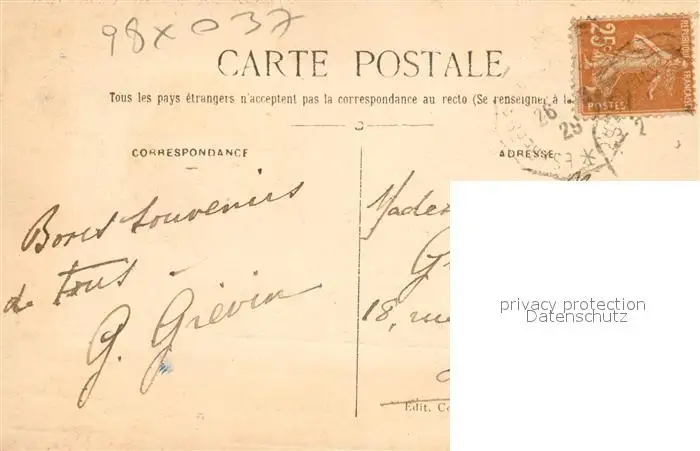 98x037
CARTE POSTALE
Tous les pays étrangers n'acceptent pas la correspondance au recto (Se renseigner à la
CORRESPONDANCE
ADRESSE
RÉPUBLIQUE FRANÇAISE
25c
POSTES
26
25
2
Bons souvenirs
de tous
G. Grévin
Made
G
18, rue
Edit. C
privacy protection
Datenschutz